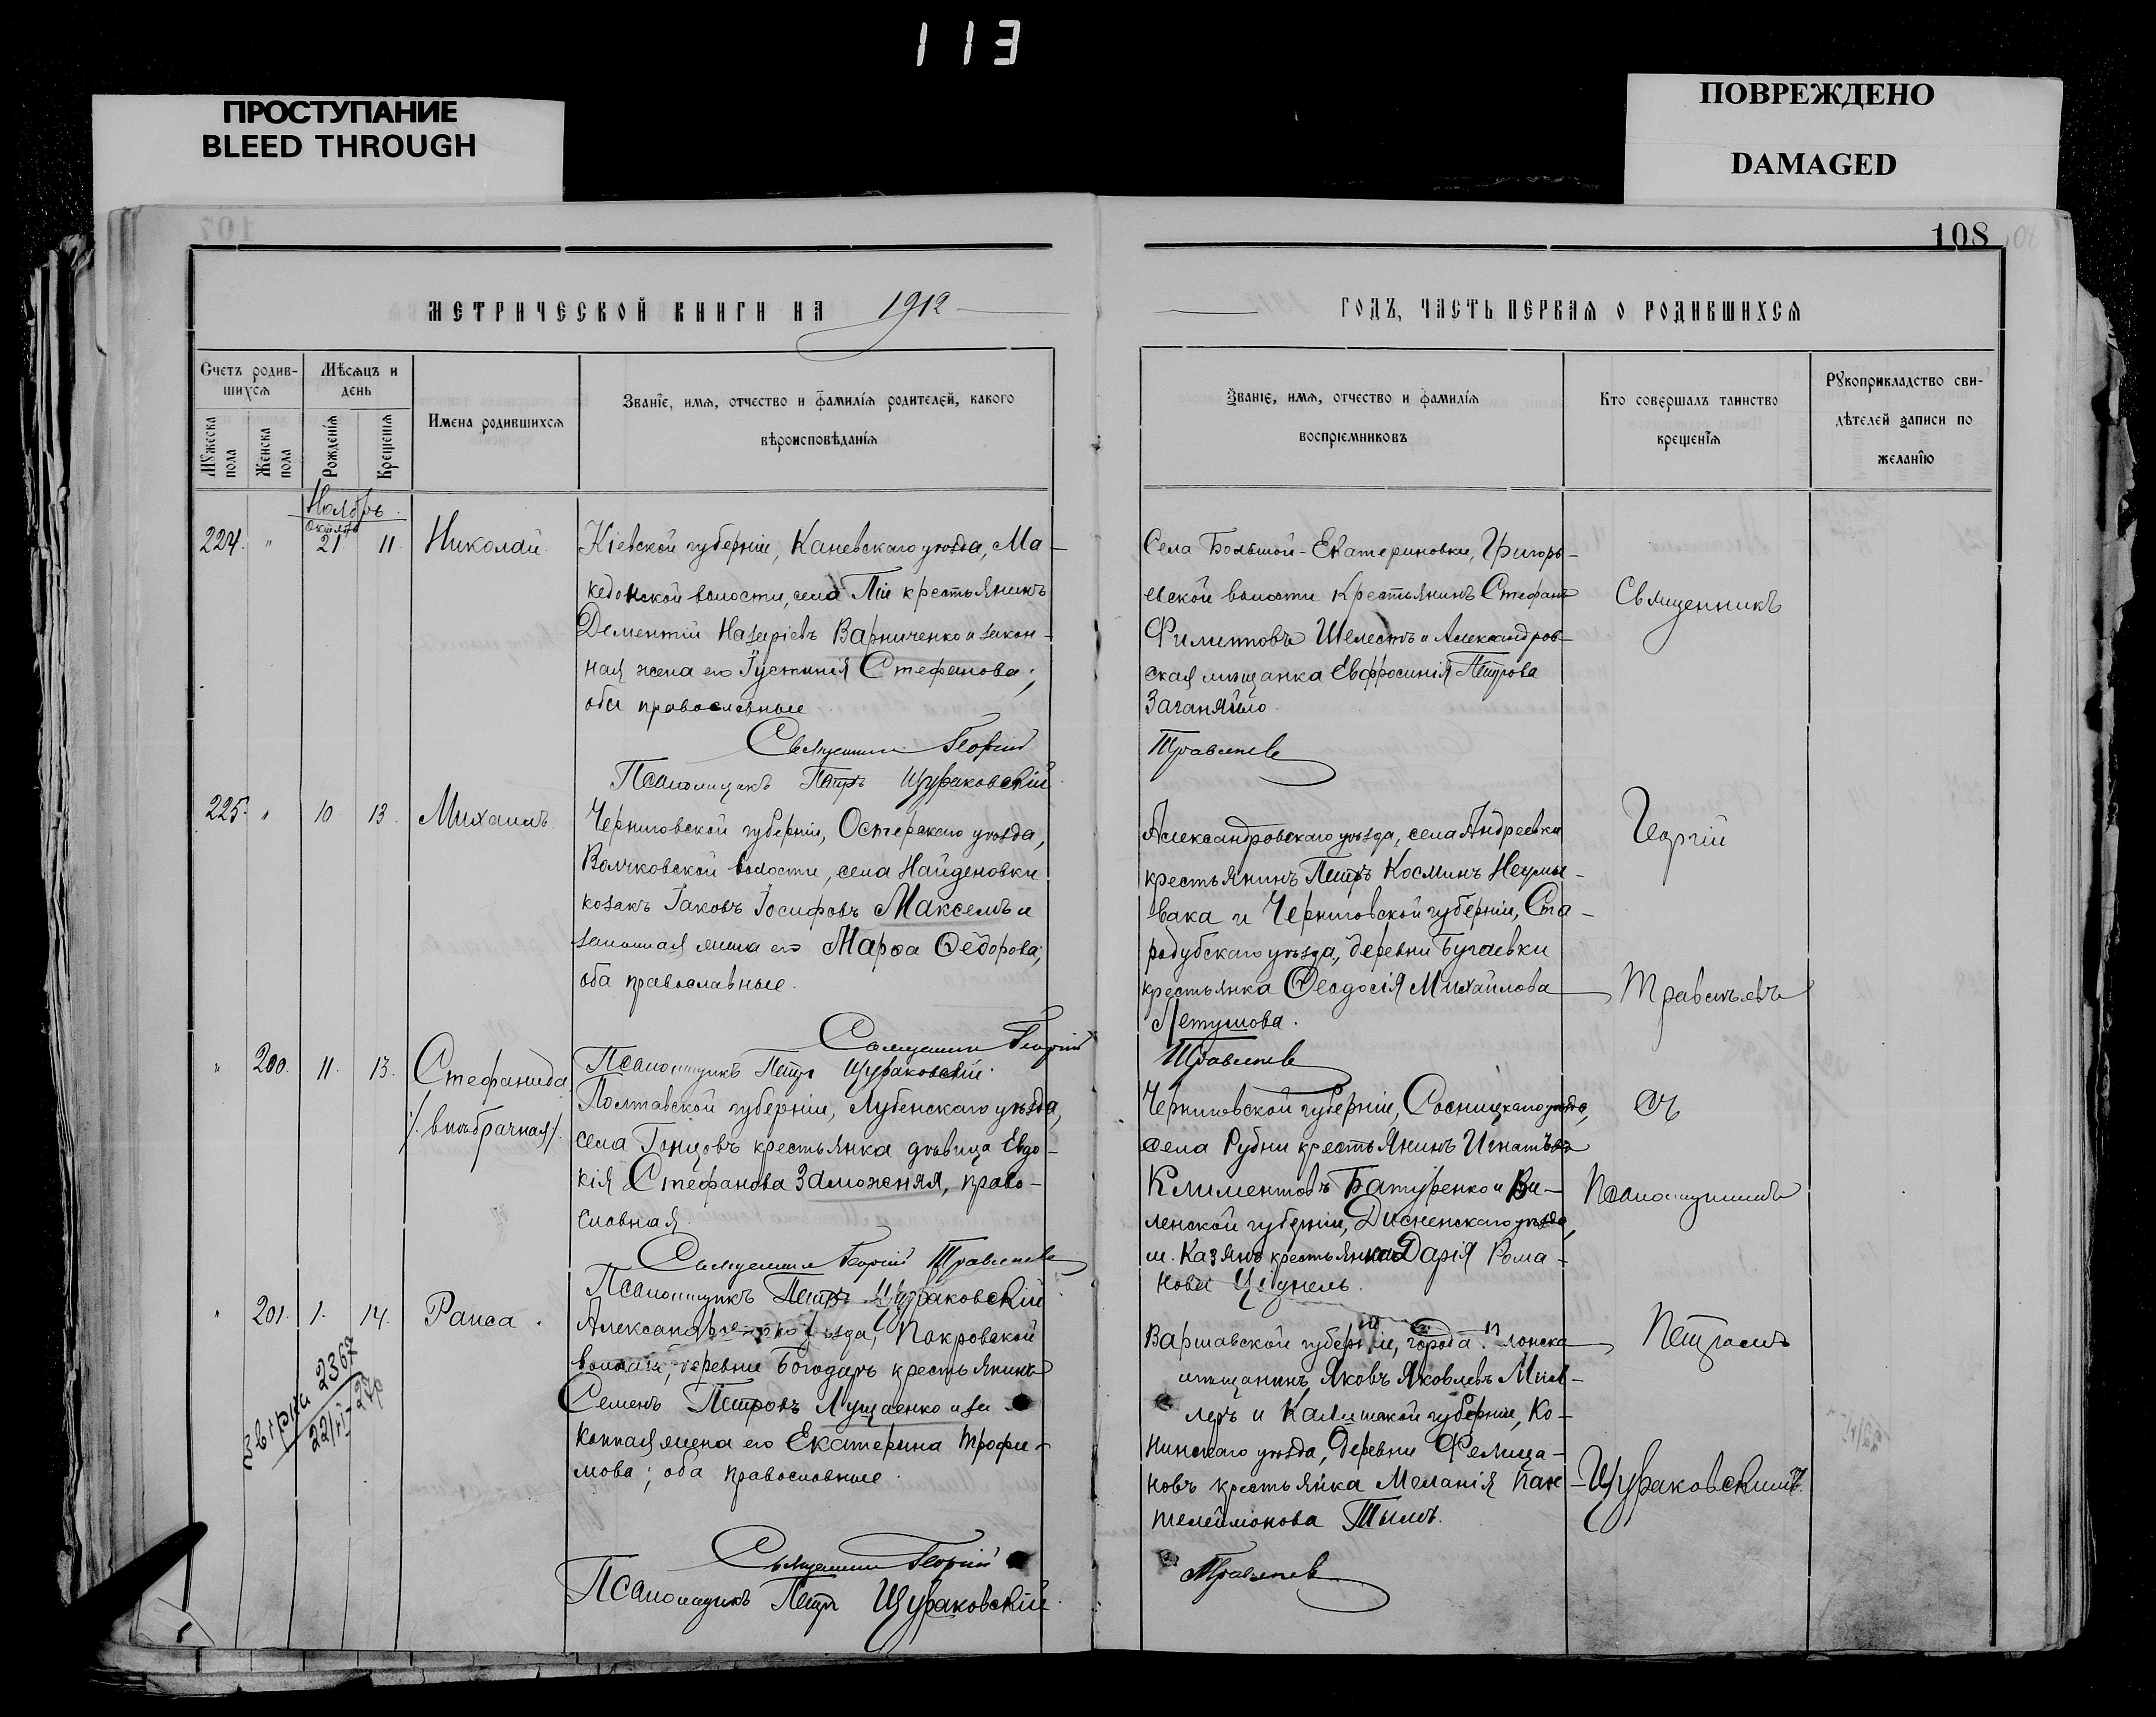 113
ПРОСТУПАНИЕ
BLEED THROUGH
ПОВРЕЖДЕНО
DAMAGED
108
МЕТРИЧЕСКОЙ КНИГИ НА 1912
ГОДЪ, ЧАСТЬ ПЕРВАЯ О РОДИВШИХСЯ
Счетъ родив-
шихся
Мужеска
пола
Женска
пола
Мѣсяцъ и
день
Рожденія
Крещенія
Имена родившихся
Званіе, имя, отчество и фамилія родителей, какого
вѣроисповѣданія
Званіе, имя, отчество и фамилія
воспріемниковъ
Кто совершалъ таинство
крещенія
Рукоприкладство сви-
дѣтелей записи по
желанію
Ноябрь.
Октябр
224. " 21 11. Николай
Кіевской губерніи, Каневскаго уѣзда, Ма-
кедонской волости, села Піи крестьянинъ
Дементій Назаріевъ Варниченко и закон-
ная жена его Іустинія Стефанова;
оба православные
Священникъ Георгій
Псаломщикъ Петръ Щураковскій
Села Большой-Екатериновки, Григорь-
евской волости крестьянинъ Стефанъ
Филипповъ Шелестъ и Александров-
ская мѣщанка Евфросинія Петрова
Заганяйло.
Травлѣевъ
Священникъ
225. " 10. 13. Михаилъ
Черниговской губерніи, Остерскаго уѣзда,
Волчковской волости, села Найденовки
козакъ Іаковъ Іосифовъ Максемъ и
законная жена его Марѳа Ѳедорова;
оба православные.
Священникъ Георгій
Псаломщикъ Петръ Щураковскій.
Александровскаго уѣзда, села Андреевки
крестьянинъ Петръ Косминъ Неумы-
вака и Черниговской губерніи, Ста-
родубскаго уѣзда, деревни Бугаевки
крестьянка Ѳеодосія Михайлова
Петушова.
Георгій
" 200. 11. 13. Стефанида
/. внѣбрачная/.
Полтавской губерніи, Лубенскаго уѣзда,
села Гонцовъ крестьянка дѣвица Евдо-
кія Стефанова Заможняя, право-
славная.
Священникъ Георгій
Псаломщикъ Петръ Щураковскій
Черниговской губерніи, Сосницкаго уѣзда,
села Рудни крестьянинъ Игнатъ
Климентовъ Батуренко и Ви-
ленской губерніи, Дисненскаго уѣзда,
м. Казянъ крестьянка Дарія Рома-
нова
съ
Псаломщикомъ
" 201. 1. 14. Раиса.
Александровскаго уѣзда, Покровской
волости, деревни Богодаръ крестьянинъ
Семенъ Петровъ Лущаенко и за-
конная жена его Екатерина Трофи-
мова; оба православные.
Священникъ Георгій
Псаломщикъ Петръ Щураковскій
Варшавской губерніи, города Плонска
мѣщанинъ Яковъ Яковлевъ Мил-
леръ и Калишской губерніи, Ко-
нинскаго уѣзда, деревни Фелица-
новъ крестьянка Меланія Пан-
телеймонова Тымъ.
Петромъ
Щураковскимъ.
Звірка 2367